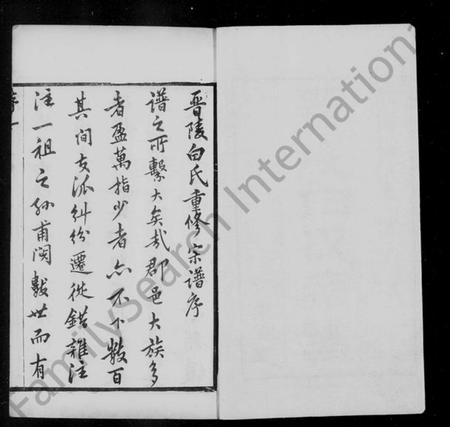 晋陵白氏重修宗谱序
谱之所繫大矣哉郡邑大族多
者盈萬指少者亦不下数百
其间支派糾纷遷徙錯雜注
注一祖之孙甫阅数世而有
序一
FamilySearch International